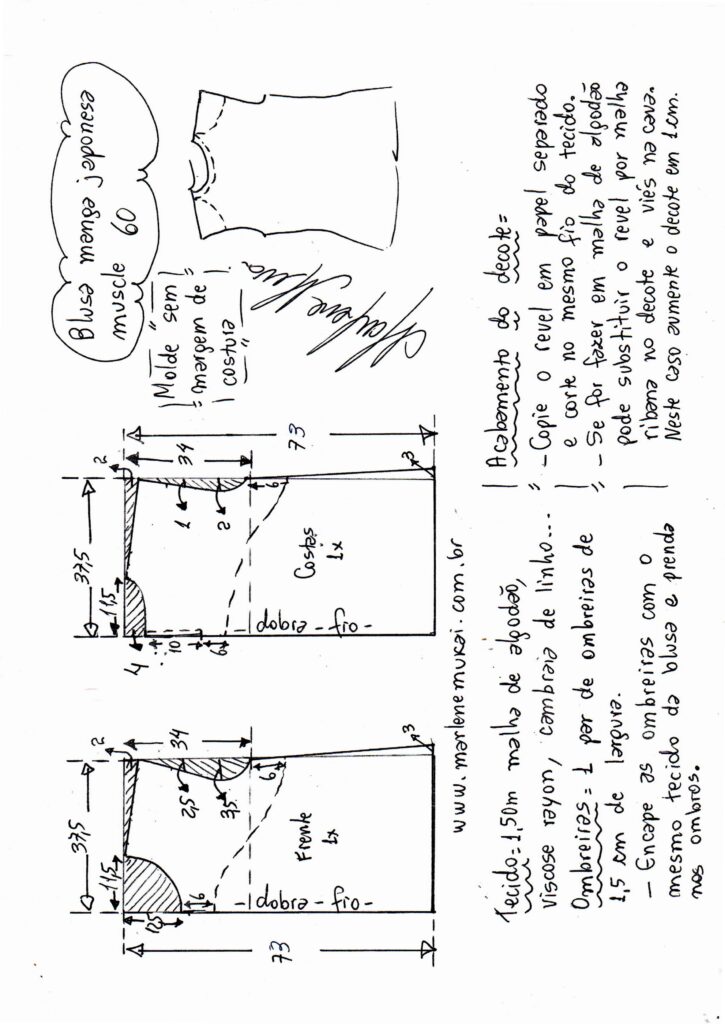 Blusa manga japonesa
muscle 60
"Molde sem"
margem de
"costura"
73
37,5
11,5
12,5
2
34
2,5
6
6
Frente
1x
dobra - fio
3
37,5
11,5
4
2
34
10
1
2
6
6
Costas
1x
dobra - fio
3
73
www.marlenemukai.com.br
Tecido = 1,50m malha de algodão,
viscose rayon, cambraia de linho...
Ombreiras = 1 par de ombreiras de
1,5 cm de largura.
- Encape as ombreiras com o
mesmo tecido da blusa e prenda
nos ombros.
Acabamento do decote =
- Copie o revel em papel separado
e corte no mesmo fio do tecido.
- Se for fazer em malha de algodão
pode substituir o revel por malha
ribana no decote e viés na cava.
Neste caso aumente o decote em 1cm.